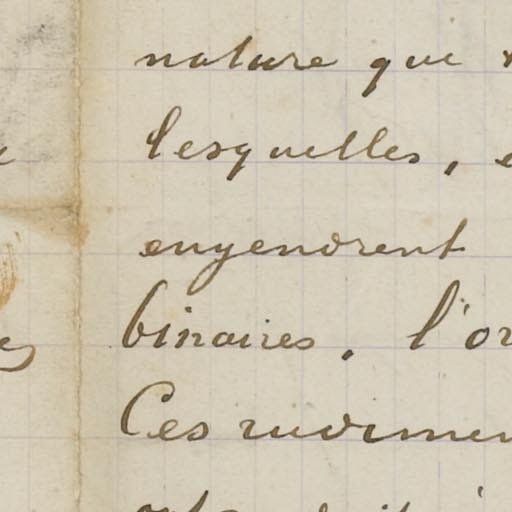 nature que
lesquelles,
engendrent
binaires, l'or
Ces rudimen